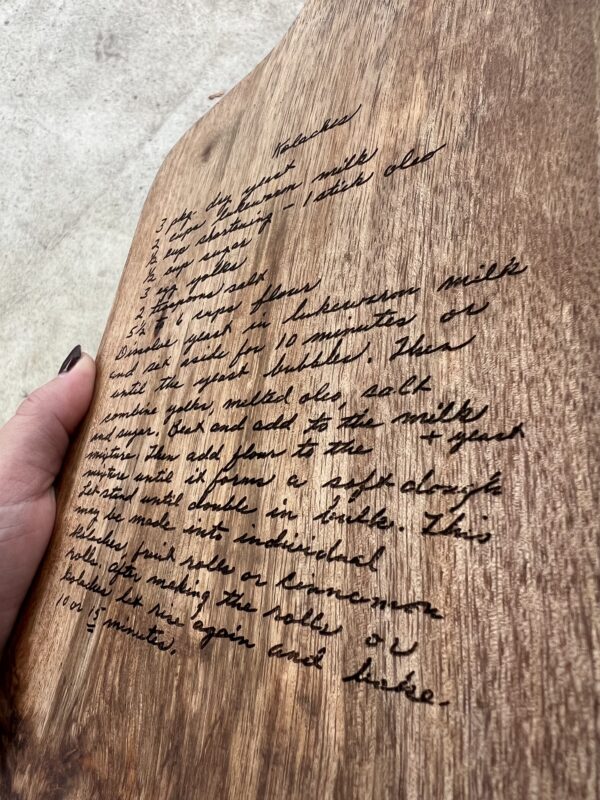 Kolaches
3 pkg. dry yeast
2 cups lukewarm milk
1/2 cup shortening - 1 stick oleo
1/2 cup sugar
3 egg yolks
2 teaspoons salt
5 1/2 to 6 cups flour
Dissolve yeast in lukewarm milk
and set aside for 10 minutes or
until the yeast bubbles. Then
combine yolks, melted oleo, salt
and sugar. Beat and add to the milk + yeast
mixture, then add flour to the
mixture until it forms a soft dough
Let stand until double in bulk. This
may be made into individual
Kolaches, fruit rolls or cinnamon
rolls, after making the rolls or
kolaches let rise again and bake.
10 or 15 minutes.